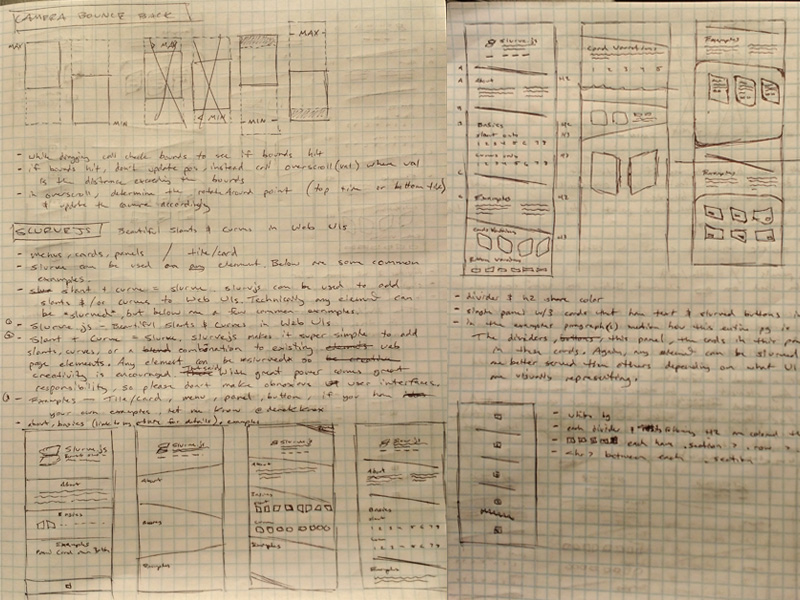 CAMERA BOUNCE BACK
MAX
MIN
MAX
MIN
- MAX -
- while dragging cell check bounds to see if bounds hit
- if bounds hit, don't update pos, instead call overscroll(val) where val
is the distance exceeding the bounds
- in overscroll, determine the rotate around point (top side or bottom side)
& update the camera accordingly
SLURVE JS Beautiful Slants & Curves in Web UIs
- menus, cards, panels / tile/card
- slurve can be used on any element. Below are some common
examples.
- slant + curve = slurve. slurvejs can be used to add
slants &/or curves to Web UIs. Technically any element can
be "slurved", but below are a few common examples.
Slurve.js - Beautiful Slants & Curves in Web UIs
Slant + Curve = Slurve. Slurvejs makes it super simple to add
slants, curves, or a combinations to existing web
page elements. Any element can be slurved so
creativity is encouraged. With great power comes great
responsibility, so please don't make obnoxious user interfaces.
Examples - Tile/card, menu, panel, button, if you have
your own examples, let me know @derekknox
- about, basics (link to for details), examples
Slurve.js
About
Basics
Examples
Panel Card
Slurve.js
About
Basics
Examples
Slurve.js
About
Basics
Examples
Slurve.js
About
Basics
1 2 3 4 5 6 7 8
1 2 3 4 5 6 7 8
Examples
Slurve.js
About
H2
Basics
slant only
1 2 3 4 5 6 7 8
curves only
1 2 3 4 5 6 7 8
H2
H3
H3
Examples
H2
Card Variations
H3
Button Variations
Card Variations
1 2 3 4 5
Examples
Examples
- divider & h2 share color
- single panel w/3 cards that have text & slurved buttons
- in the examples paragraph(s) mention how this entire pg is
The dividers, this panel, the cards in this
in these cards. Again, any element can be slurved
are better served than others depending on what UI
are visually representing.
- white bg
- each divider & following H2 are colored
each have .section > .row >
- <hr> between each .section